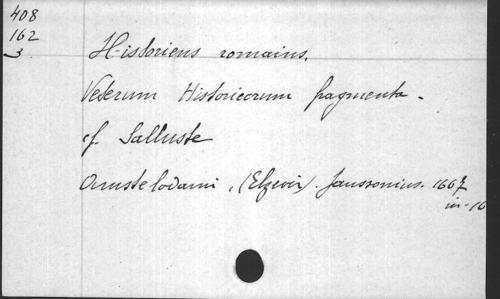 408
162
3
Historiens romains.
Veterum Historicorum fragmenta.
cf. Salluste
Amstelodami, (Elzevir). Janssonius. 1667
in-16